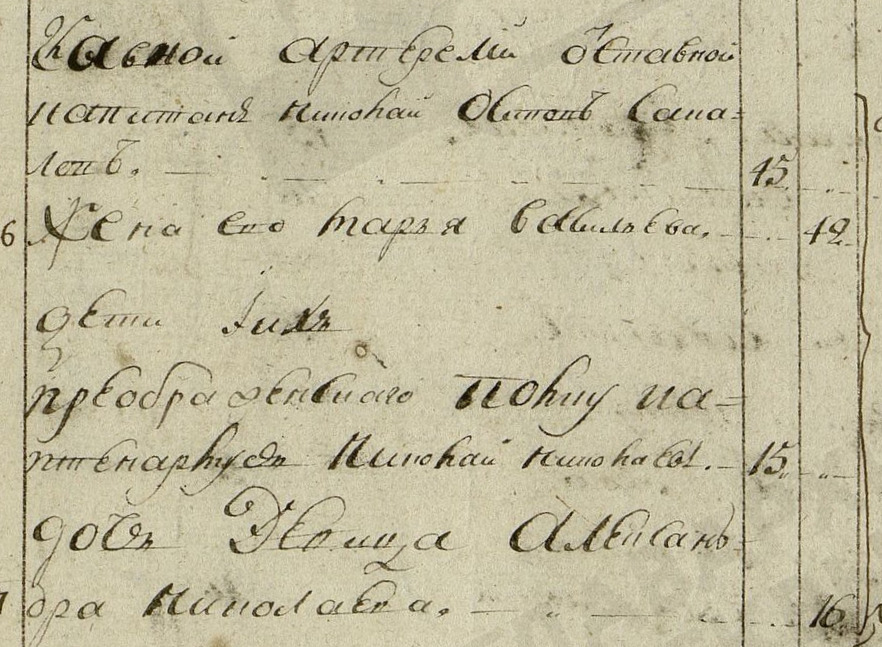 Главной артилерии отставной
капитанъ Николай Осиповъ Сапа=
ловъ. 45
6 Жена его Марья Васильева. 42
дети ихъ
преображенскаго полку ка=
птенармусъ Николай Николаевъ. 15
дочь Девица Алексанъ=
дра Николаева. 16